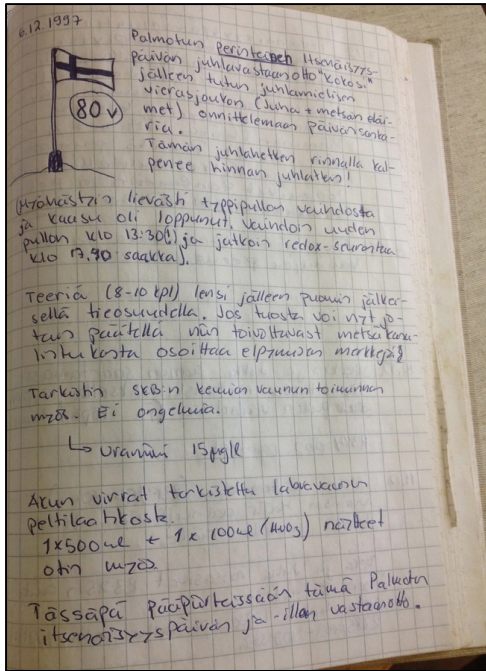 6.12.1997
Palmotun perinteinen Itsenäisyys-
päivän juhlavastaanotto "kokosi"
jälleen tutun juhlamielisen
vierasjoukon (Juha + metsän eläi-
met) onnittelemaan päivänsanka-
ria.
80 v
Tämän juhlahetken rinnalla kal-
penee linnan juhlatkin!
(Myöhästyin lievästi typpipullon vaihdosta
ja kaasu oli loppunut. Vaihdoin uuden
pullon klo 13:30(!) ja jatkoin redox-seurantaa
klo 17.90 saakka).
Teeriä (8-10 kpl) lensi jälleen puomin jälkei-
sellä tieosuudella. Jos tuosta voi nyt jo-
tain päätellä niin toivottavast metsäkana-
lintukanta osoittaa elpymisen merkkejä
Tarkistin SKB:n kemian vaunun toiminnan
myös. Ei ongelmia.
↳ Uraniini 15 µg/l
Akun virrat tarkistettu labravaunun
peltilaatikosta.
1x500ml + 1x100ml (HNO3) näytteet
otin myös.
Tässäpä pääpiirteissään tämä Palmotun
itsenäisyyspäivän ja -illan vastaanotto.